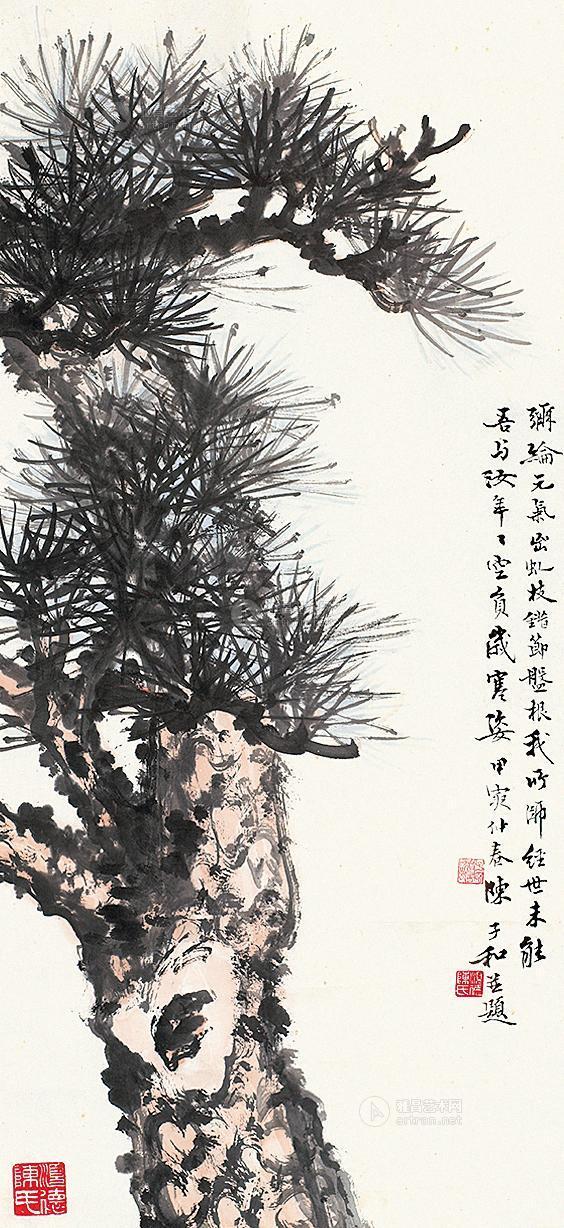 彌綸元氣出虬枝錯節盤根我所師經世未能
吾与汝年〻空負歲寒姿甲寅仲春陳子和並題
陳氏
鴻德
陳氏
雅昌艺术网
artron.net